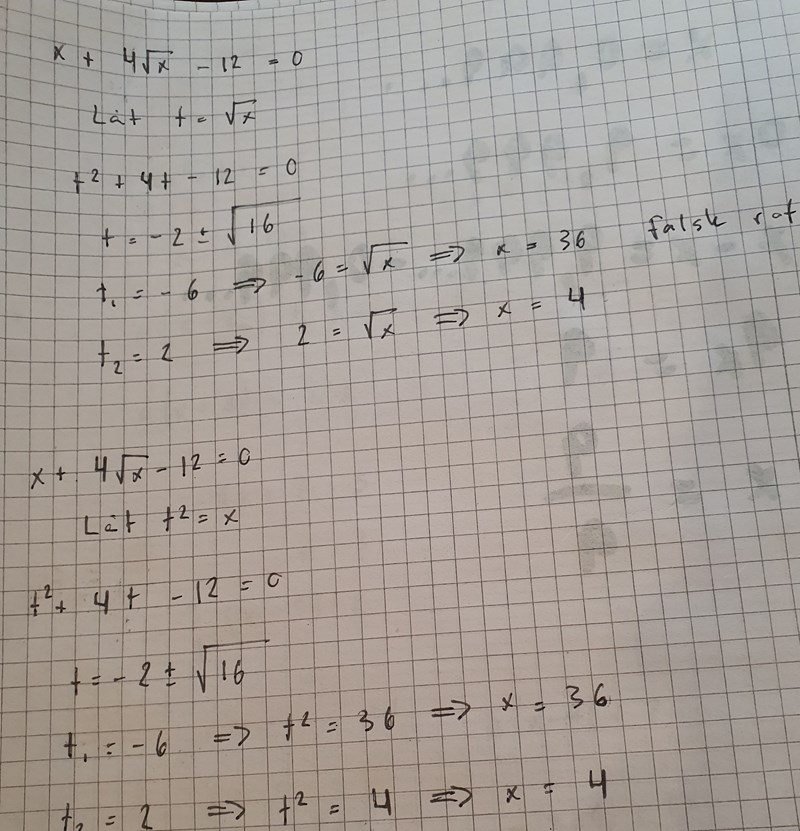 x + 4√x - 12 = 0
Låt t = √x
t² + 4t - 12 = 0
t = -2 ± √16
t₁ = -6 ⇒ -6 = √x ⇒ x = 36 falsk rot
t₂ = 2 ⇒ 2 = √x ⇒ x = 4
x + 4√x - 12 = 0
Låt t² = x
t² + 4t - 12 = 0
t = -2 ± √16
t₁ = -6 ⇒ t² = 36 ⇒ x = 36
t₂ = 2 ⇒ t² = 4 ⇒ x = 4